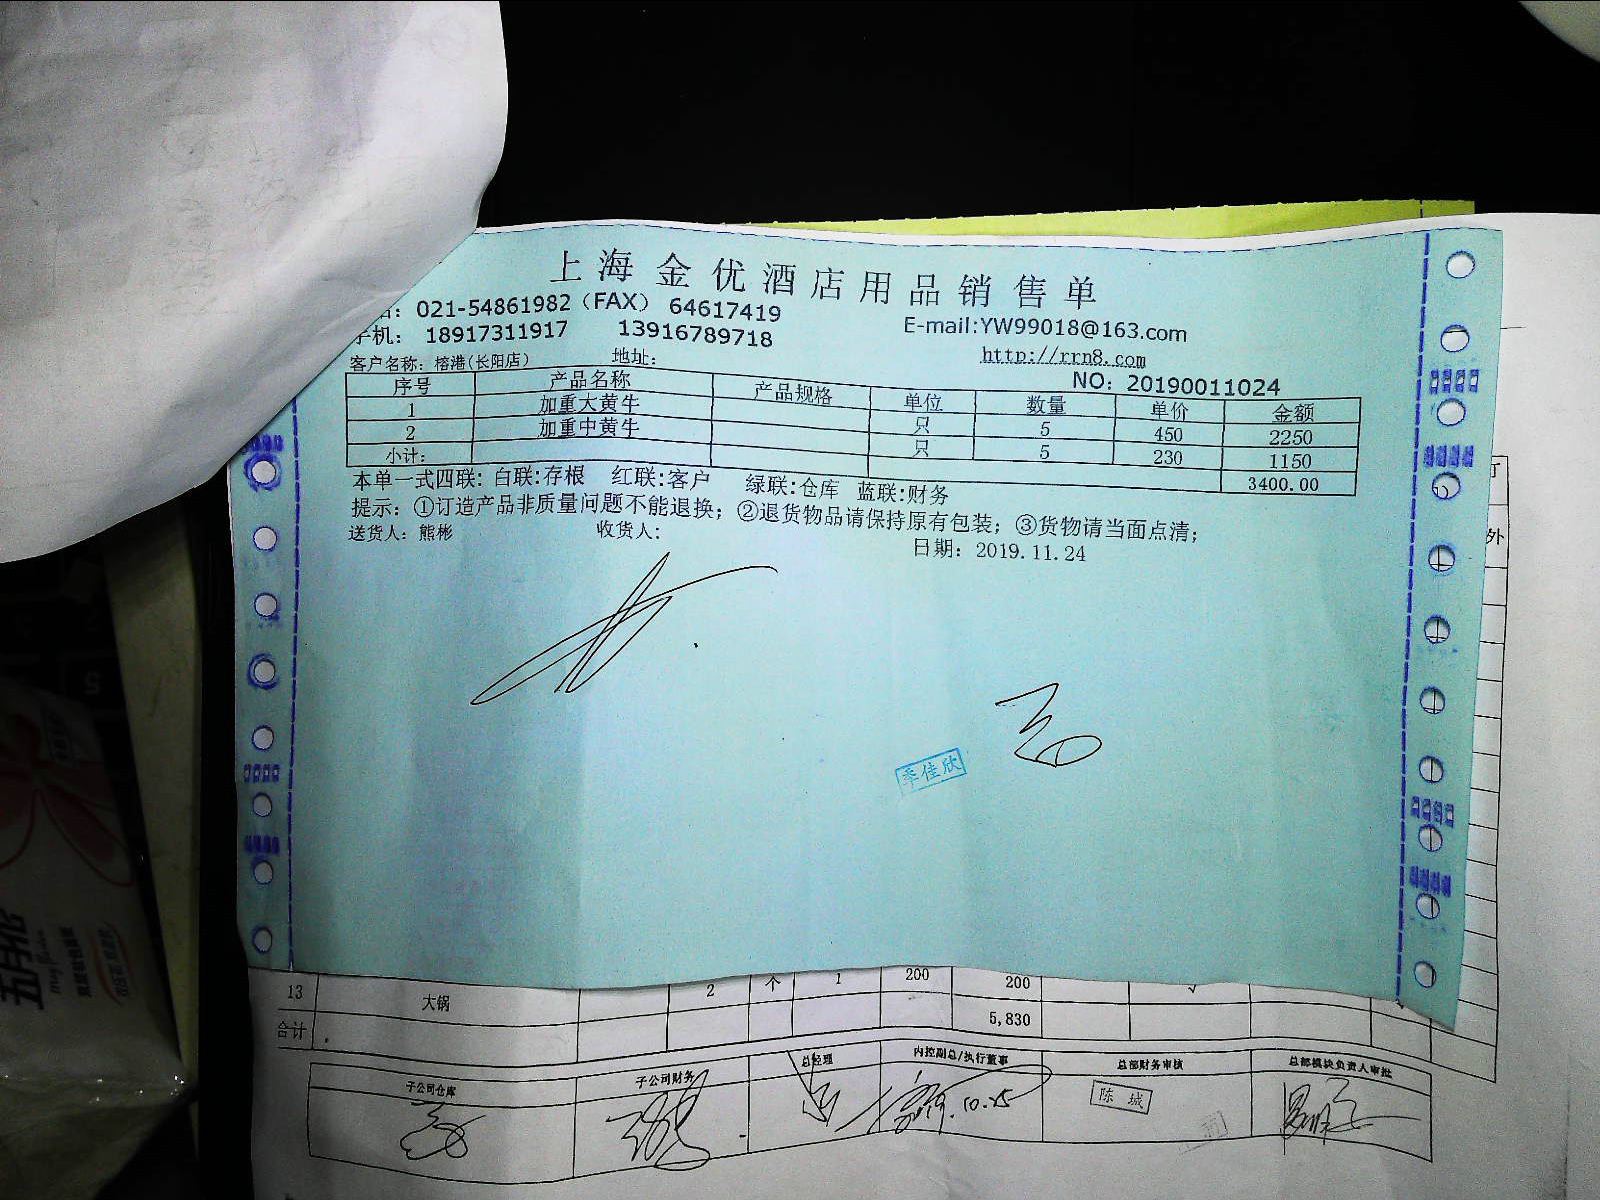 上海金优酒店用品销售单
021-54861982（FAX） 64617419
手机： 18917311917 13916789718
E-mail:YW99018@163.com
http://rrn8.com
客户名称：榕港(长阳店) 地址：
NO：20190011024
序号 产品名称 产品规格 单位 数量 单价 金额
1 加重大黄牛 只 5 450 2250
2 加重中黄牛 只 5 230 1150
小计： 3400.00
本单一式四联：白联:存根 红联:客户 绿联:仓库 蓝联:财务
提示：①订造产品非质量问题不能退换；②退货物品请保持原有包装；③货物请当面点清；
送货人：熊彬 收货人： 日期：2019.11.24
季佳欣
外
13 大锅 2 个 1 200 200 √
合计 5,830
子公司仓库 子公司财务 总经理 内控副总/执行董事 总部财务审核 总部模块负责人审批
陈城
五月花